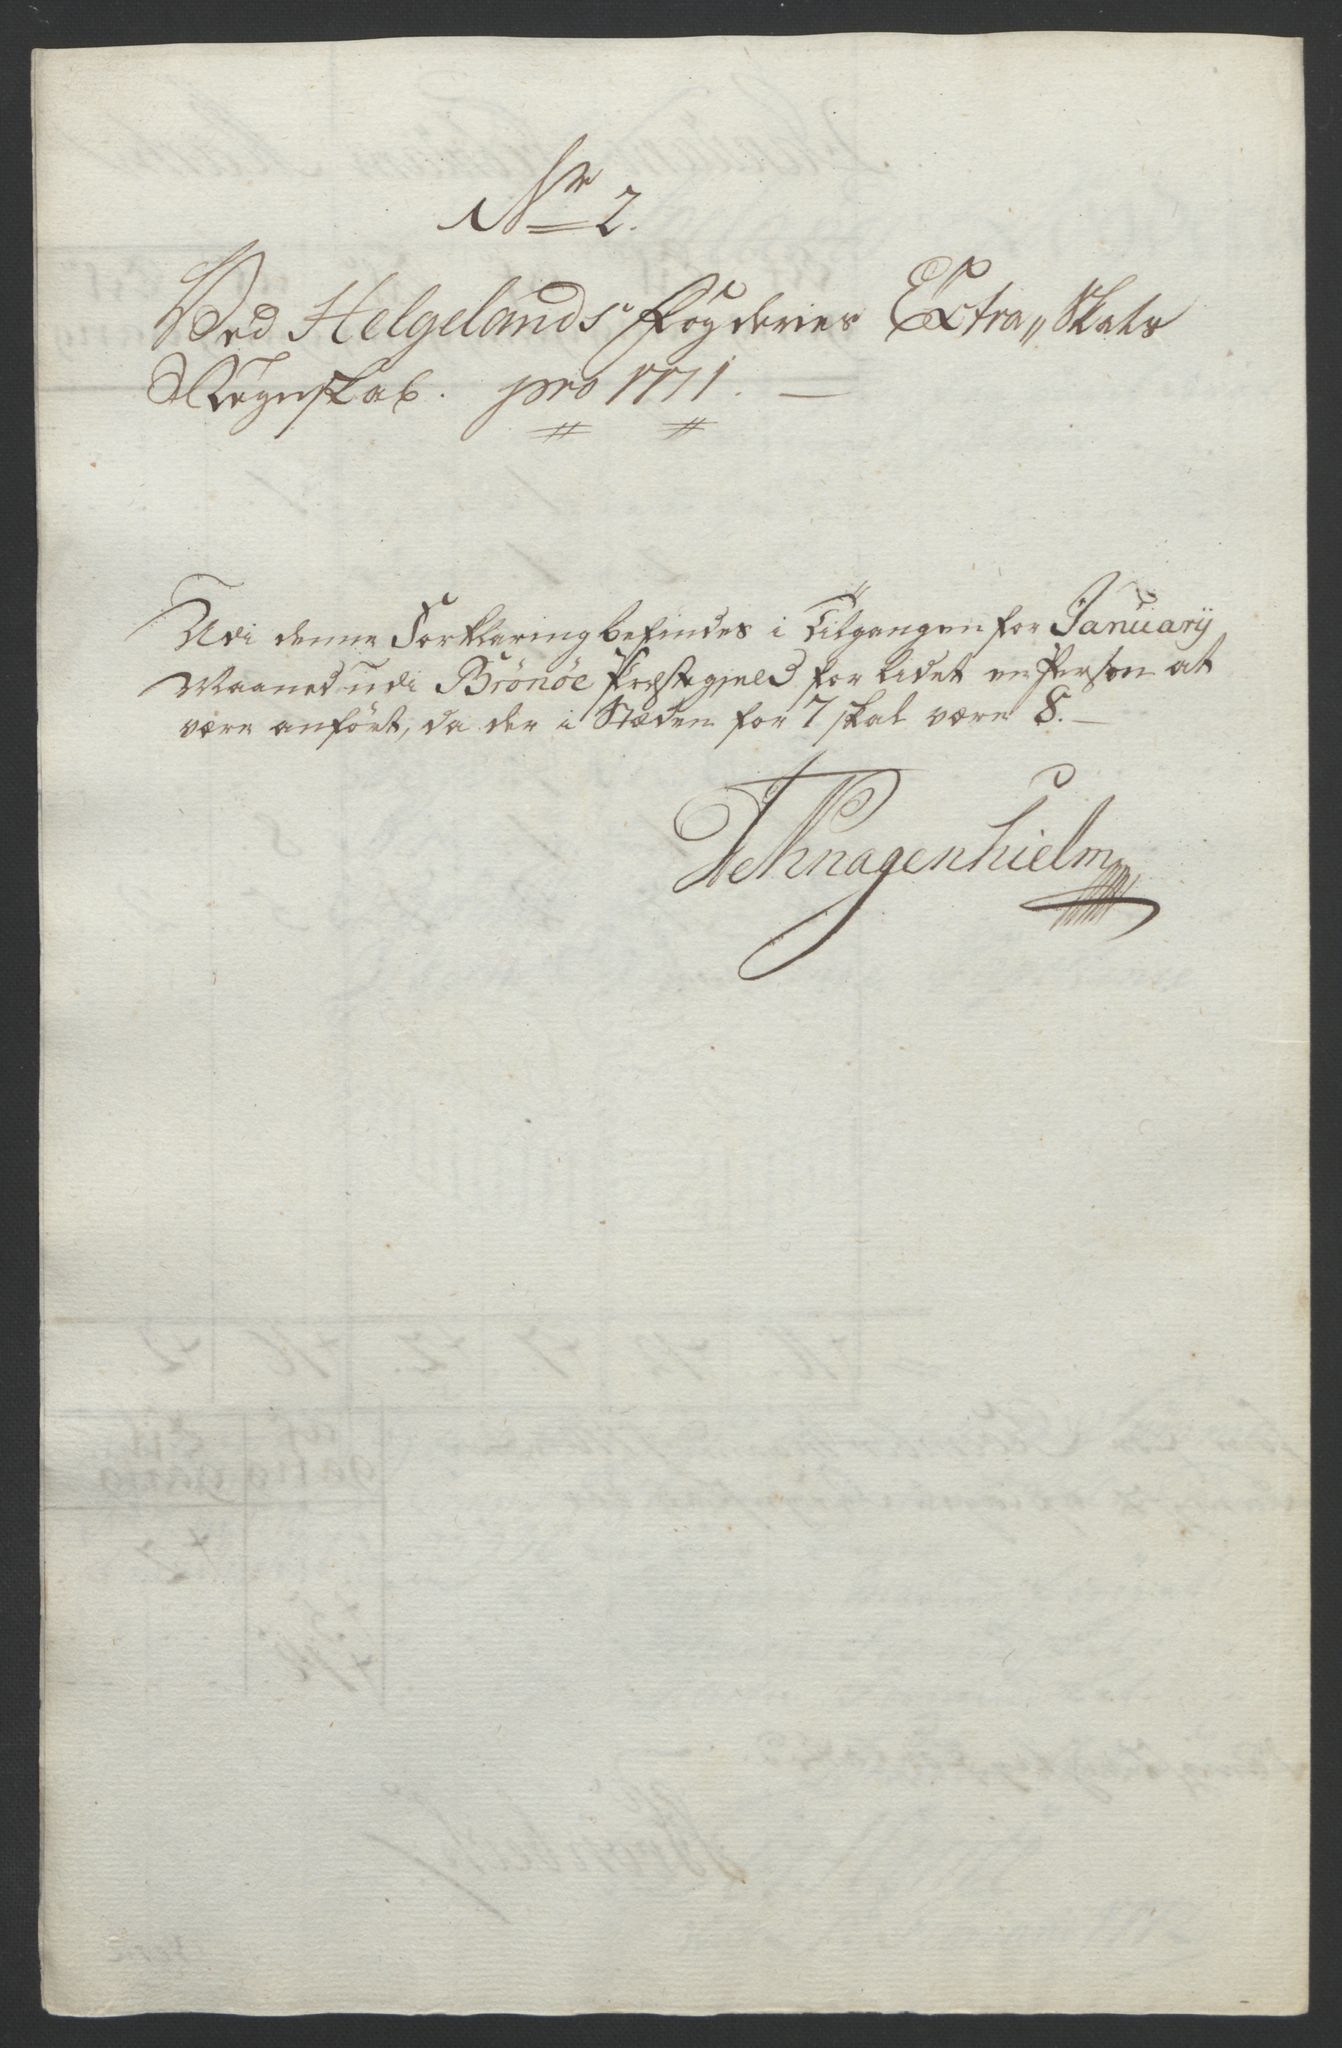 No 2.
Ved Helgelands Fogderies Extra„ Skats
Regnskab. pro 1771.
Udi denne Forklaring befindes i Tilgangen for Januarij
Maaned udi Brönöe Præstegield for lidet en Person at
være anført, da der i Stæden for 7 skal være 8.
Knagenhielm